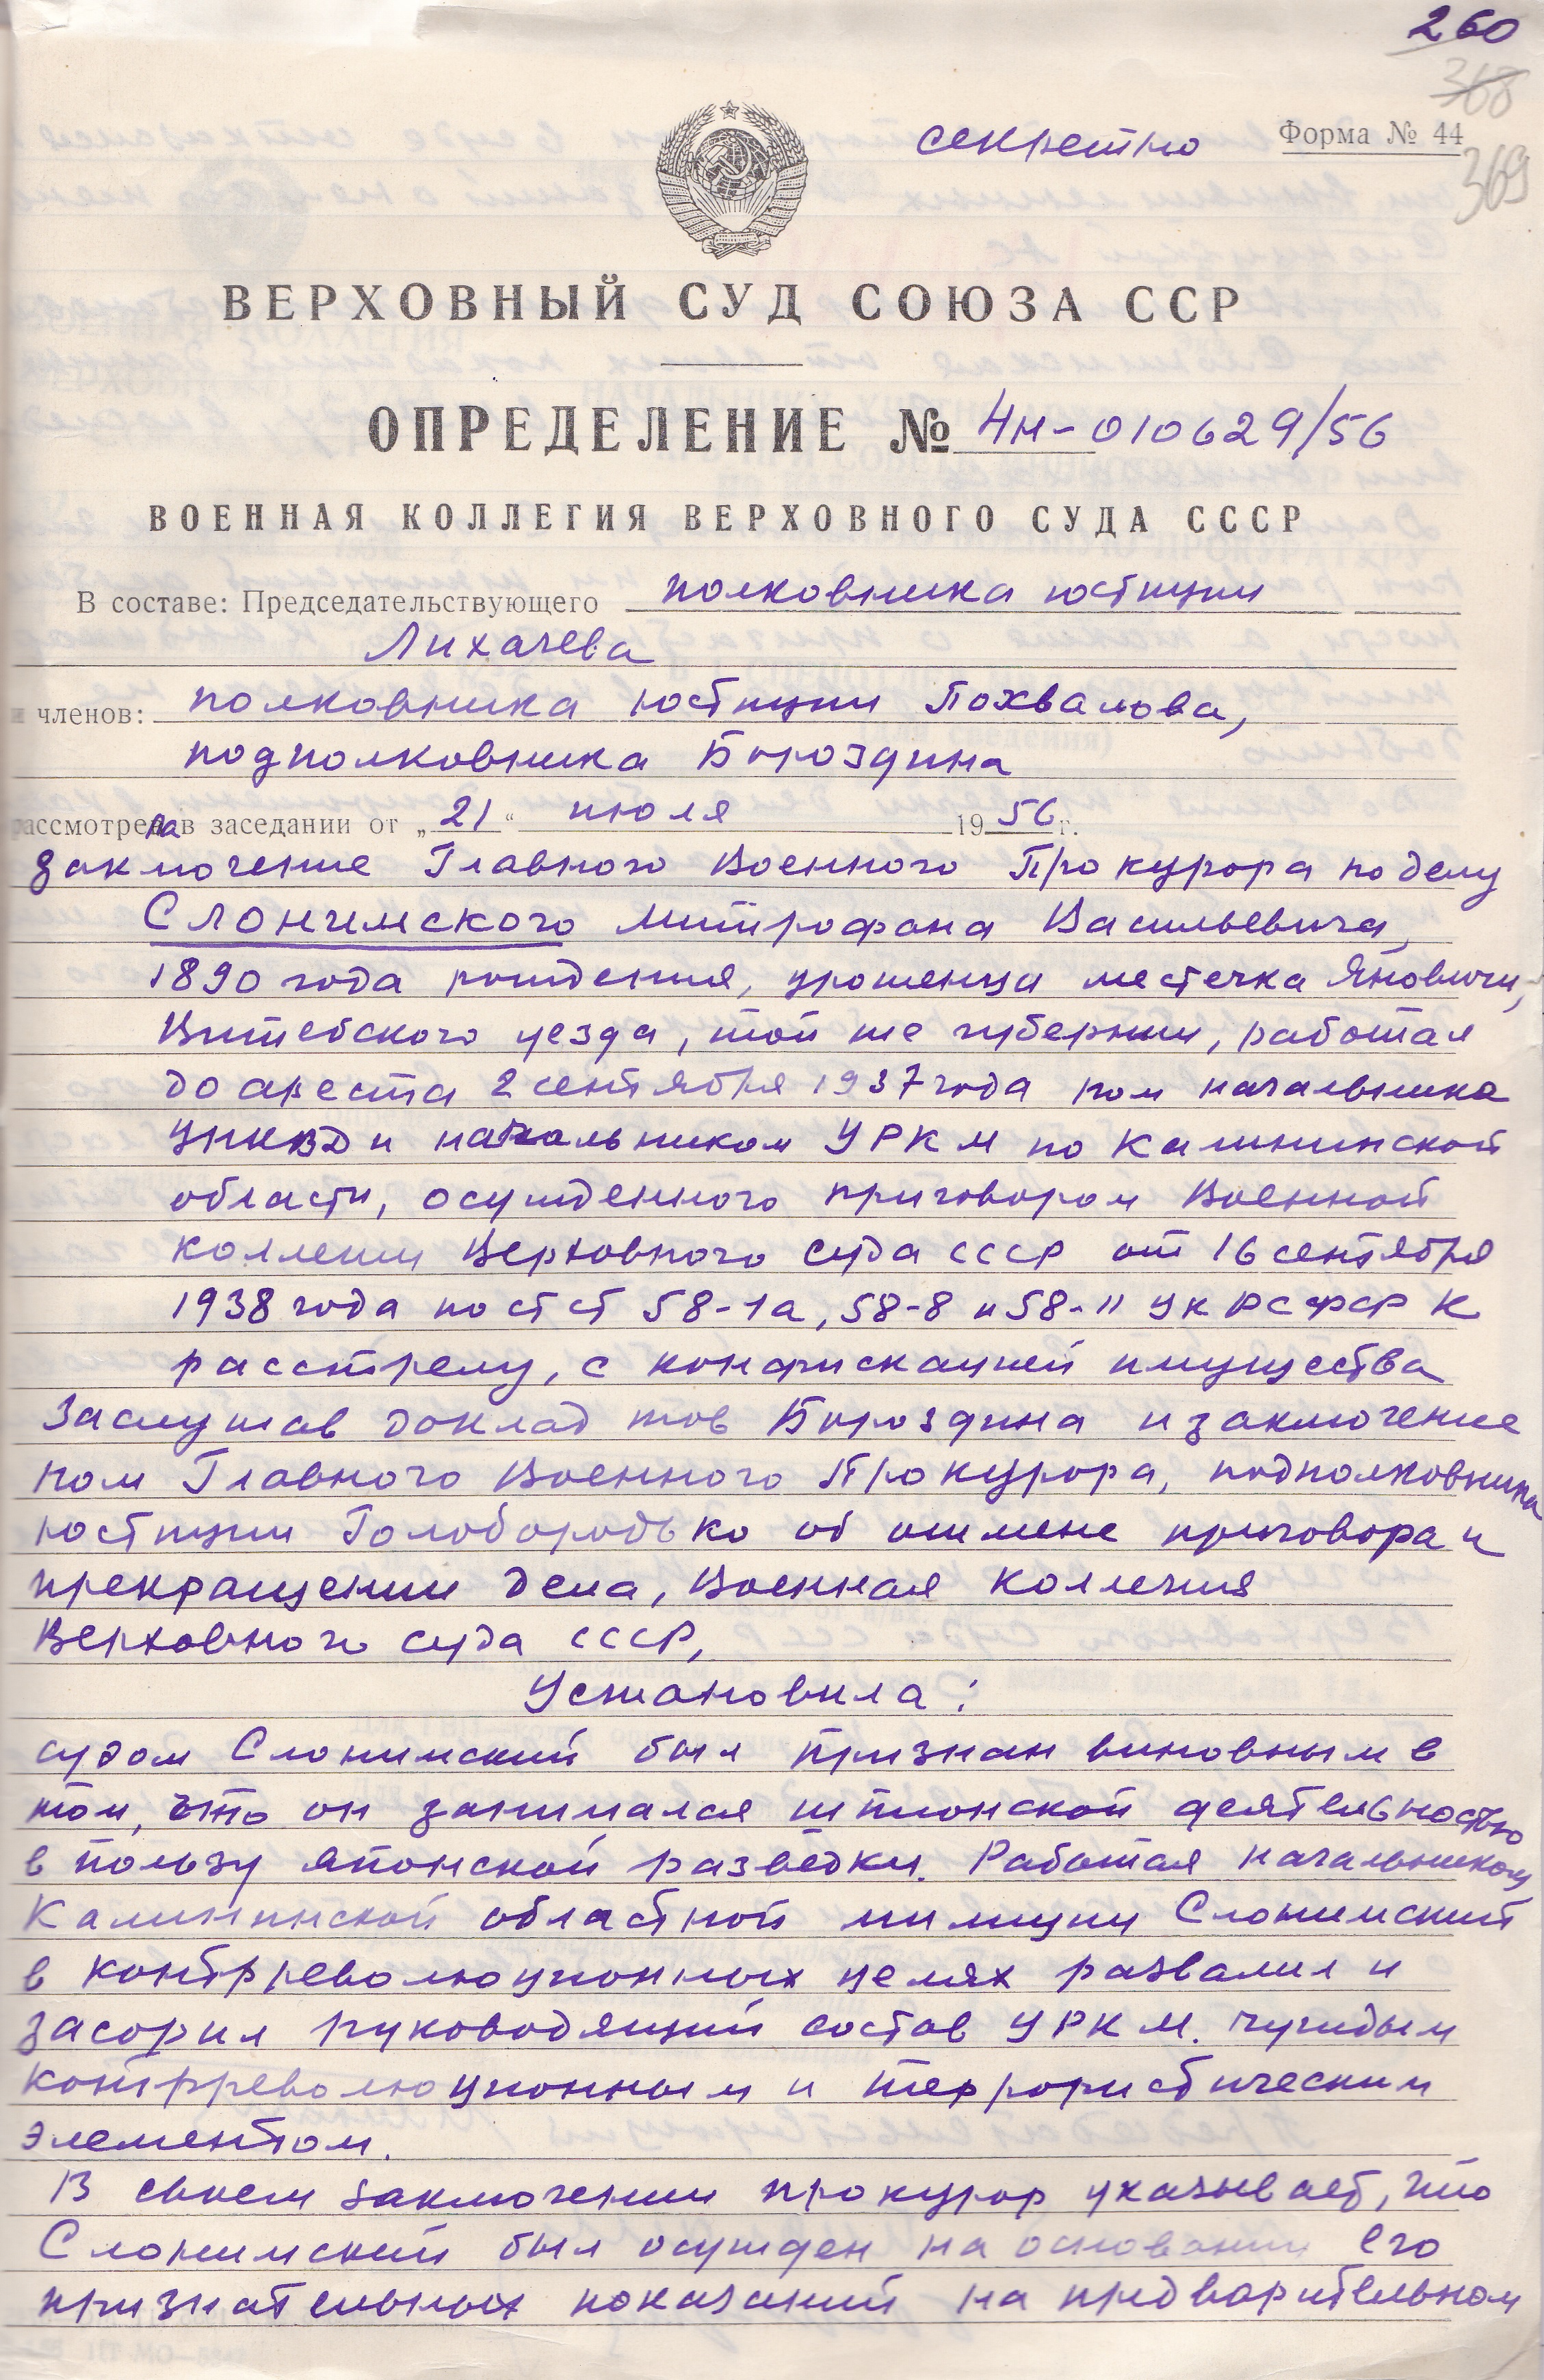 260
368
369
секретно
Форма № 44
ВЕРХОВНЫЙ СУД СОЮЗА ССР
ОПРЕДЕЛЕНИЕ № 4н-010629/56
ВОЕННАЯ КОЛЛЕГИЯ ВЕРХОВНОГО СУДА СССР
В составе: Председательствующего полковника юстиции
Лихачева
и членов: полковника юстиции Похвалова,
подполковника Бороздина
рассмотрела в заседании от „21“ июля 1956 г.
заключение Главного Военного Прокурора по делу
Слонимского Митрофана Васильевича,
1890 года рождения, уроженца местечка Яновичи,
Витебского уезда, той же губернии, работал
до ареста 2 сентября 1937 года пом начальника
УНКВД и начальником УРКМ по Калининской
области, осужденного приговором Военной
коллегии Верховного суда СССР от 16 сентября
1938 года по ст ст 58-1а, 58-8 и 58-11 УК РСФСР к
расстрелу, с конфискацией имущества
Заслушав доклад тов Бороздина и заключение
пом Главного Военного Прокурора, подполковника
юстиции Голобородько об отмене приговора и
прекращении дела, Военная коллегия
Верховного суда СССР,
Установила:
судом Слонимский был признан виновным в
том, что он занимался шпионской деятельностью
в пользу японской разведки. Работая начальником
Калининской областной милиции Слонимский
в контрреволюционных целях развалил и
засорил руководящий состав УРКМ. чуждым
контрреволюционным и террористическим
элементом.
В своем заключении прокурор указывает, что
Слонимский был осужден на основании его
признательных показаний на предварительном